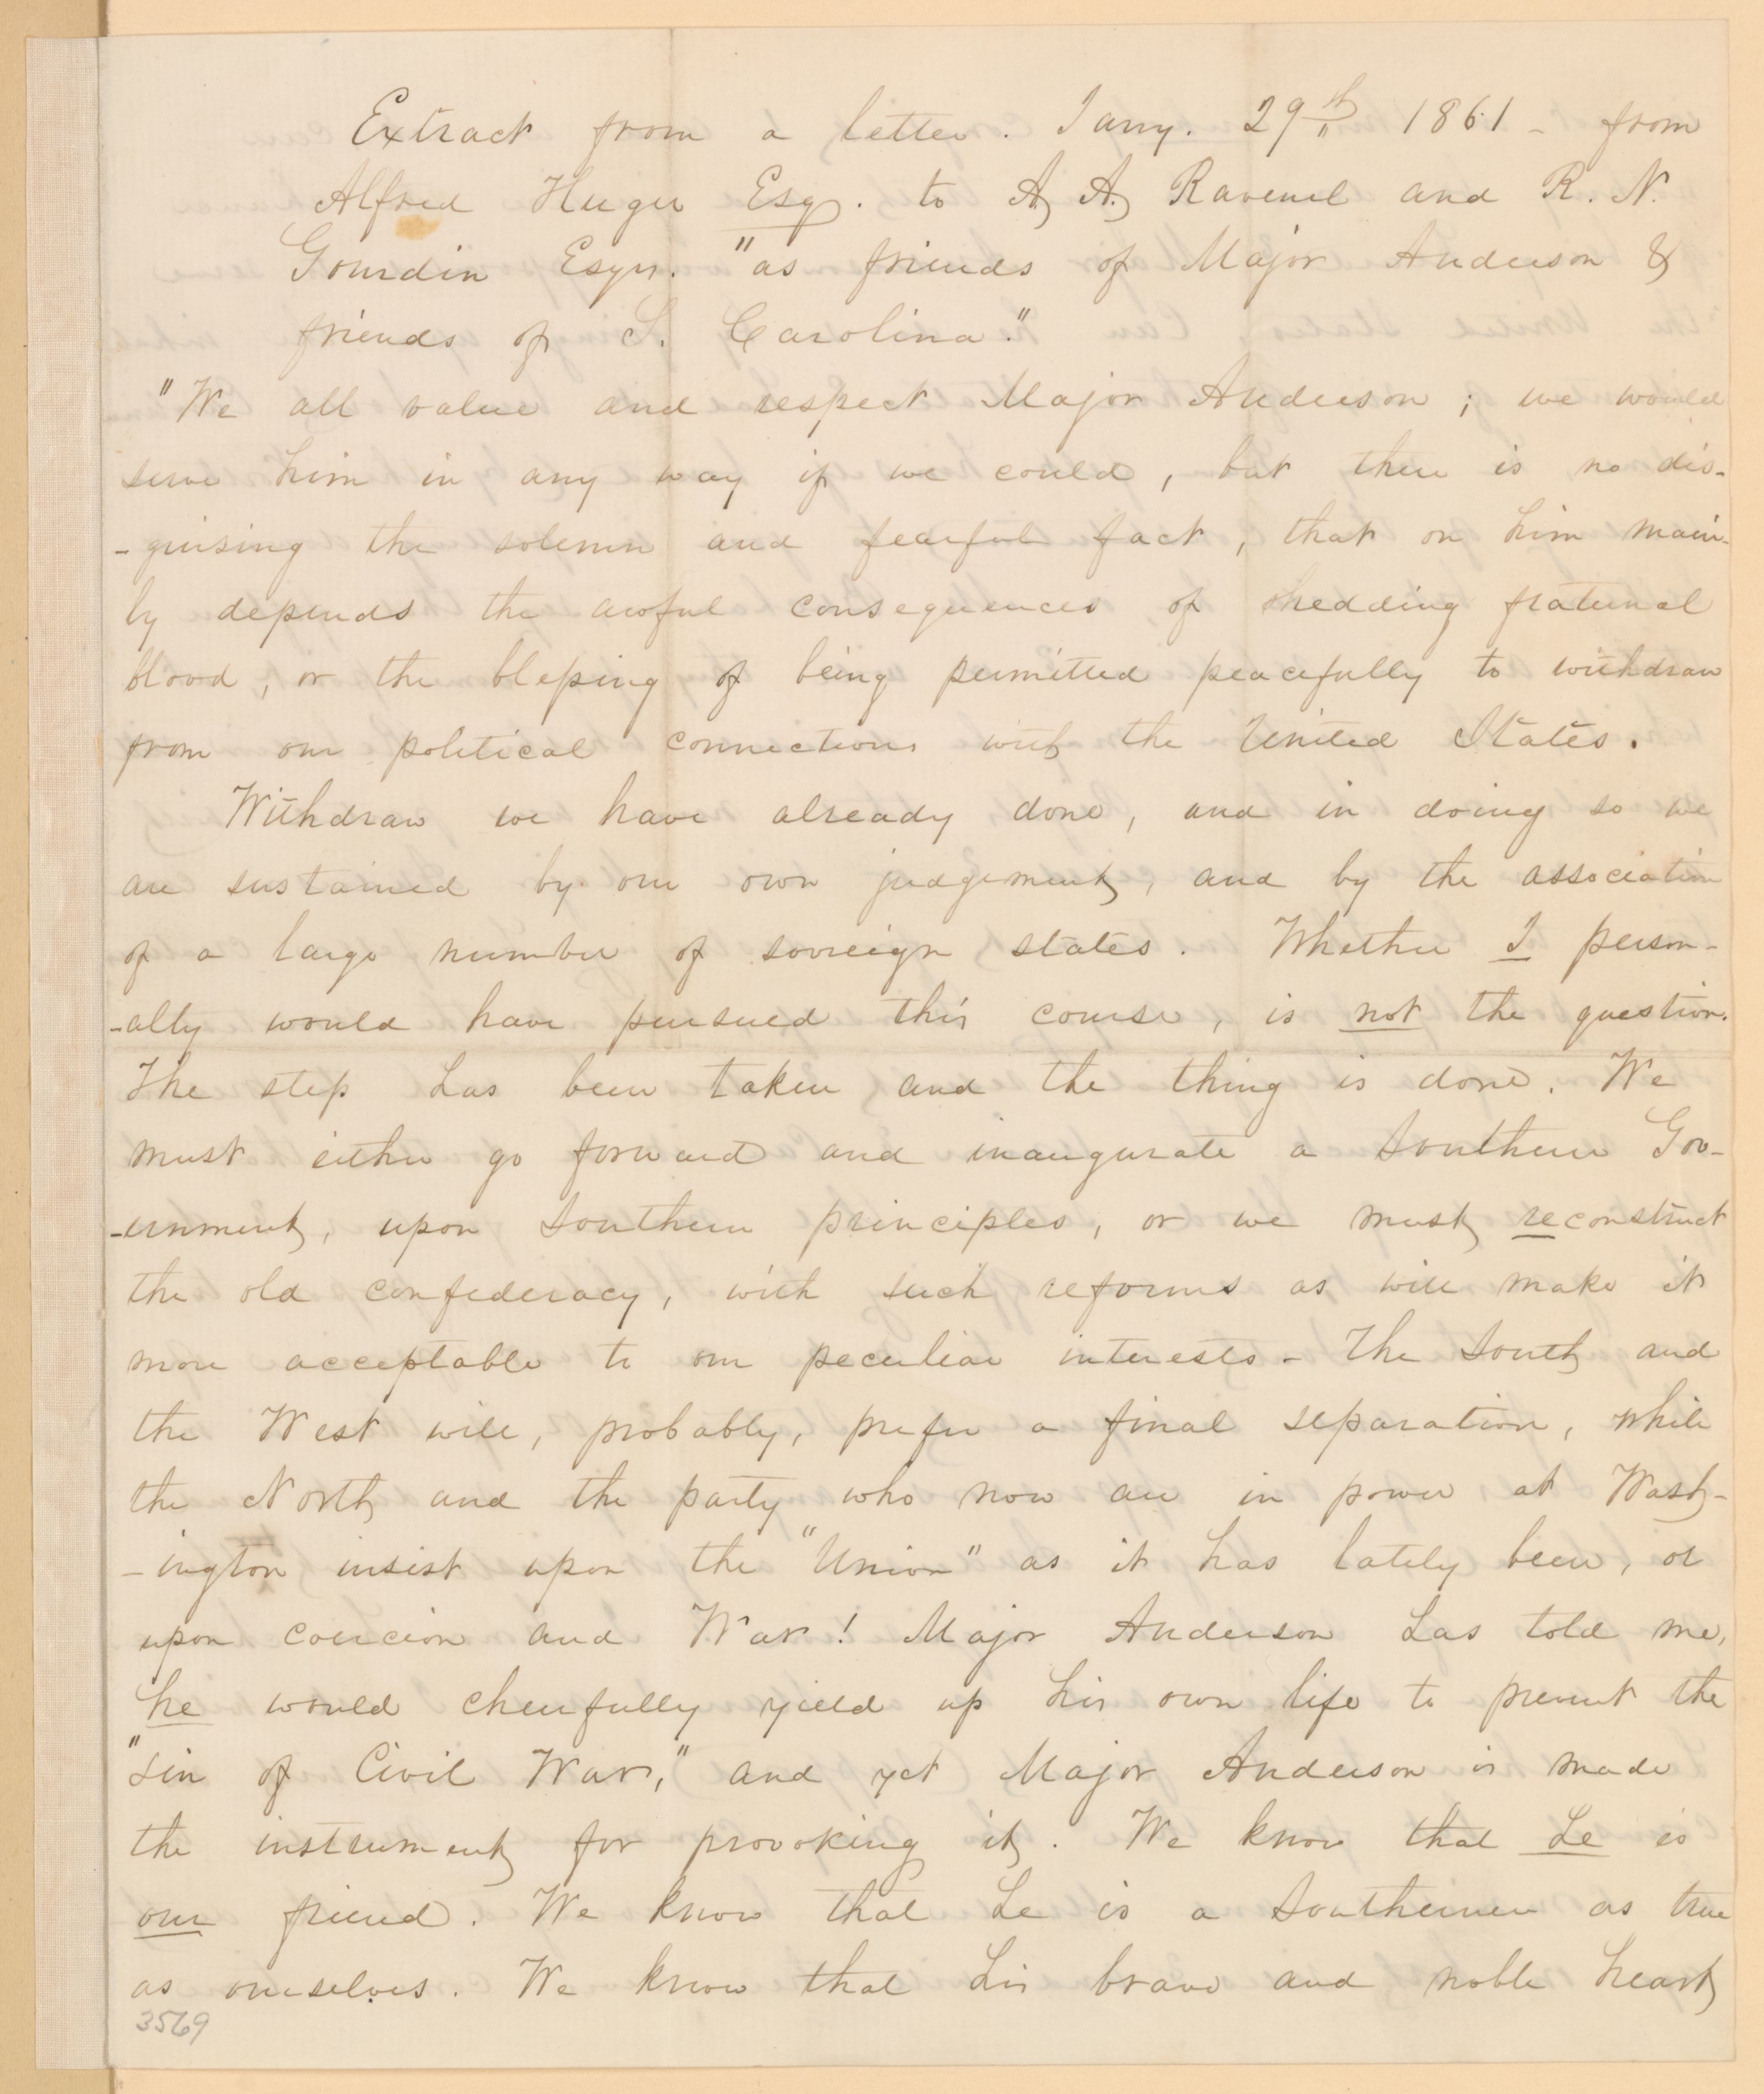 Extract from a letter. Jany. 29th 1861 - from
Alfred Huger Esq. to A, A, Ravenel and R. N.
Gourdin Esqrs. "as friends of Major Anderson &
friends of S. Carolina."
"We all value and respect Major Anderson; we would
serve him in any way if we could, but there is no dis-
-guising the solemn and fearful fact, that on him main-
ly depends the awful consequences of shedding fraternal
blood, or the blessing of being permitted peacefully to withdraw
from our political connections with the United States.
Withdraw we have already done, and in doing so we
are sustained by our own judgement, and by the association
of a large number of sovreign states. Whether I person-
-ally would have pursued this course, is not the question.
The step has been taken and the thing is done. We
must either go forward and inaugurate a Southern Gov-
-ernment, upon Southern principles, or we must reconstruct
the old confederacy, with such reforms as will make it
more acceptable to our peculiar interests - The South and
the West will, probably, prefer a final separation, while
the North and the party who now are in power at Wash-
-ington insist upon the "Union" as it has lately been, or
upon coercion and War! Major Anderson has told me,
he would cheerfully yield up his own life to prevent the
"sin of Civil War," and yet Major Anderson is made
the instrument for provoking it. We know that he is
our friend. We know that he is a Southerner as true
as ourselves. We know that his brave and noble heart
3569